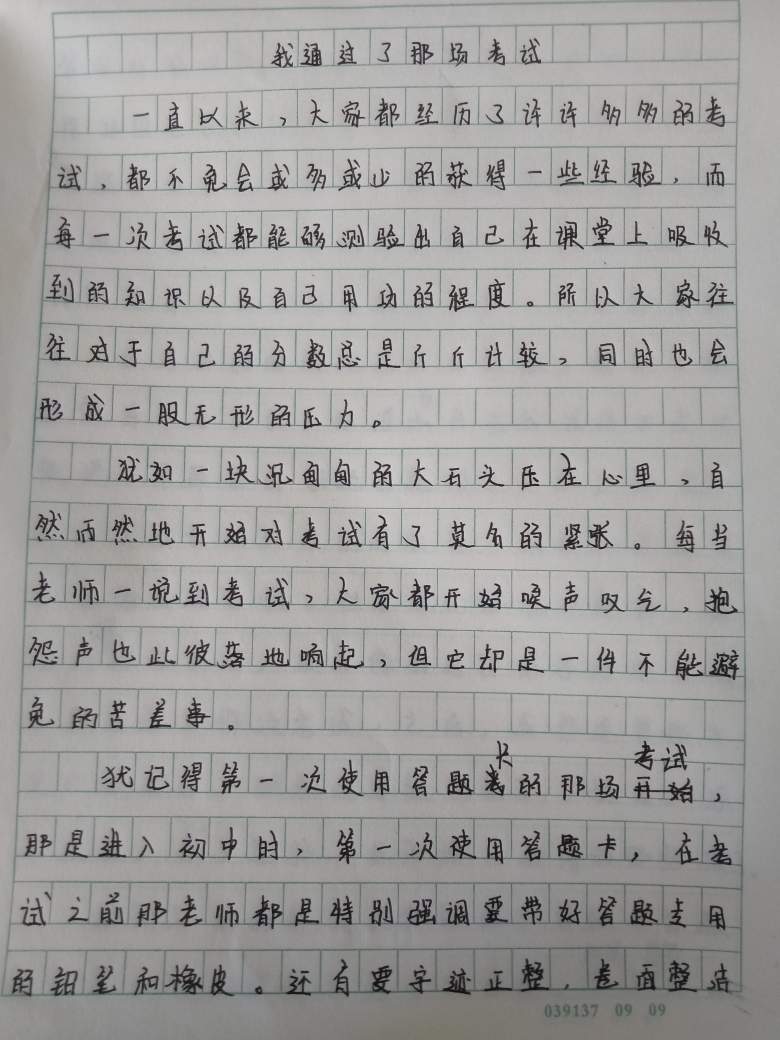 我通过了那场考试
一直以来，大家都经历了许许多多的考
试，都不免会或多或少的获得一些经验，而
每一次考试都能够测验出自己在课堂上吸收
到的知识以及自己用功的程度。所以大家往
往对于自己的分数总是斤斤计较，同时也会
形成一股无形的压力。
犹如一块沉甸甸的大石头压在心里，自
然而然地开始对考试有了莫名的紧张。每当
老师一说到考试，大家都开始唤声叹气，抱
怨声也此彼落地响起，但它却是一件不能避
免的苦差事。
卡 考试
犹记得第一次使用答题卷的那场开始，
那是进入初中时，第一次使用答题卡，在考
试之前那老师都是特别强调要带好答题专用
的铅笔和橡皮。还有要字迹正整，卷面整洁
039137 09 09